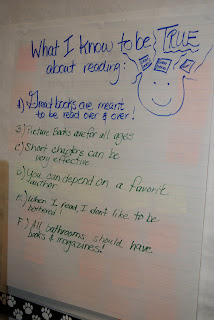 What I know to be TRUE
about reading:
A) Great books are meant
to be read over & over!
B) Picture Books are for all ages
C) Short chapters can be
very effective
D) You can depend on a favorite
author
E) When I read, I don't like to be
bothered!
F) All bathrooms should have
books & magazines!